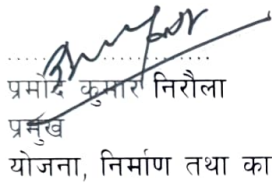 ....................
प्रमोद कुमार निरौला
प्रमुख
योजना, निर्माण तथा का